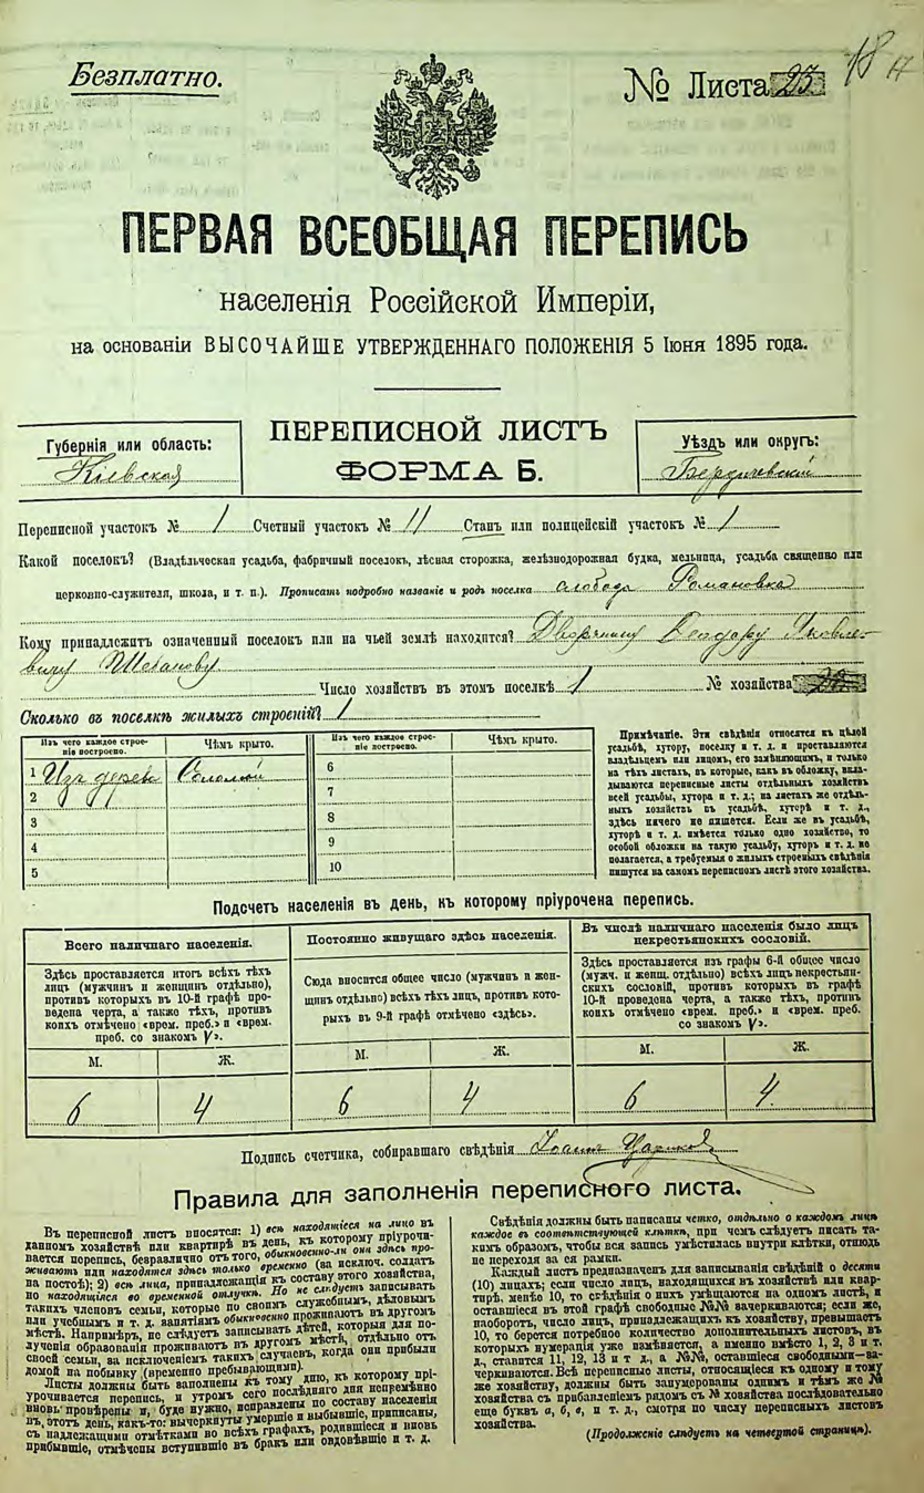 Безплатно.
№ Листа 23 18 17
ПЕРВАЯ ВСЕОБЩАЯ ПЕРЕПИСЬ
населенія Россійской Имперіи,
на основаніи ВЫСОЧАЙШЕ УТВЕРЖДЕННАГО ПОЛОЖЕНІЯ 5 Іюня 1895 года.
Губернія или область:
Кіевская
ПЕРЕПИСНОЙ ЛИСТЪ
ФОРМА Б.
Уѣздъ или округъ:
Бердичевскій
Переписной участокъ № 1 Счетный участокъ № 11 Станъ или полицейскій участокъ № 1
Какой поселокъ? (Владѣльческая усадьба, фабричный поселокъ, лѣсная сторожка, желѣзнодорожная будка, мельница, усадьба священно или
церковно-служителя, школа, и т. п.). Прописать подробно названіе и родъ поселка слобода Романовка
Кому принадлежитъ означенный поселокъ или на чьей землѣ находится? Дворянину Феодору Яковле-
вичу
Число хозяйствъ въ этомъ поселкѣ 1 № хозяйства
Сколько въ поселкѣ жилыхъ строеній? 1
Изъ чего каждое строе-
ніе построено.
Чѣмъ крыто.
Изъ чего каждое строе-
ніе построено.
Чѣмъ крыто.
1 Изъ дерева Соломой
2
3
4
5
6
7
8
9
10
Примѣчаніе. Эти свѣдѣнія относятся къ цѣлой
усадьбѣ, хутору, поселку и т. д. и проставляются
владѣльцемъ или лицомъ, его замѣняющимъ, и только
на тѣхъ листахъ, въ которые, какъ въ обложку, вкла-
дываются переписные листы отдѣльныхъ хозяйствъ
всей усадьбы, хутора и т. д.; на листахъ же отдѣль-
ныхъ хозяйствъ въ усадьбѣ, хуторѣ и т. д.,
здѣсь ничего не пишется. Если же въ усадьбѣ,
хуторѣ и т. д. имѣется только одно хозяйство, то
особой обложки на такую усадьбу, хуторъ и т. д. не
полагается, а требуемыя о жилыхъ строеніяхъ свѣдѣнія
пишутся на самомъ переписномъ листѣ этого хозяйства.
Подсчетъ населенія въ день, къ которому пріурочена перепись.
Всего наличнаго населенія.
Здѣсь проставляется итогъ всѣхъ тѣхъ
лицъ (мужчинъ и женщинъ отдѣльно),
противъ которыхъ въ 10-й графѣ про-
ведена черта, а также тѣхъ, противъ
коихъ отмѣчено «врем. преб.» и «врем.
преб. со знакомъ V».
М. Ж.
6 4
Постоянно живущаго здѣсь населенія.
Сюда вносится общее число (мужчинъ и жен-
щинъ отдѣльно) всѣхъ тѣхъ лицъ, противъ кото-
рыхъ въ 9-й графѣ отмѣчено «здѣсь».
М. Ж.
6 4
Въ числѣ наличнаго населенія было лицъ
некрестьянскихъ сословій.
Здѣсь проставляется изъ графы 6-й общее число
(мужч. и женщ. отдѣльно) всѣхъ лицъ некрестьян-
скихъ сословій, противъ которыхъ въ графѣ
10-й проведена черта, а также тѣхъ, противъ
коихъ отмѣчено «врем. преб.» и «врем. преб.
со знакомъ V».
М. Ж.
6 4
Подпись счетчика, собиравшаго свѣдѣнія Іоаннъ
Правила для заполненія переписного листа.
Въ переписной листъ вносятся: 1) всѣ находящіеся на лицо въ
данномъ хозяйствѣ или квартирѣ въ день, къ которому пріурочи-
вается перепись, безразлично отъ того, обыкновенно-ли они здѣсь про-
живаютъ или находятся здѣсь только временно (за исключ. солдатъ
на постоѣ); 2) всѣ лица, принадлежащія къ составу этого хозяйства,
но находящіяся во временной отлучкѣ. Но не слѣдуетъ записывать
такихъ членовъ семьи, которые по своимъ служебнымъ, дѣловымъ
или учебнымъ и т. д. занятіямъ обыкновенно проживаютъ въ другомъ
мѣстѣ. Напримѣръ, не слѣдуетъ записывать дѣтей, которыя для по-
лученія образованія проживаютъ въ другомъ мѣстѣ, отдѣльно отъ
своей семьи, за исключеніемъ такихъ случаевъ, когда они прибыли
домой на побывку (временно пребывающими).
Листы должны быть заполнены къ тому дню, къ которому прі-
урочивается перепись, и утромъ сего послѣдняго дня непремѣнно
вновь провѣрены и, буде нужно, исправлены по составу населенія
въ этотъ день, какъ-то: вычеркнуты умершіе и выбывшіе, приписаны,
съ надлежащими отмѣтками во всѣхъ графахъ, родившіеся и вновь
прибывшіе, отмѣчены вступившіе въ бракъ или овдовѣвшіе и т. д.
Свѣдѣнія должны быть написаны четко, отдѣльно о каждомъ лицѣ
каждое въ соотвѣтствующей клѣткѣ, при чемъ слѣдуетъ писать та-
кимъ образомъ, чтобы вся запись умѣстилась внутри клѣтки, отнюдь
не переходя за ея рамки.
Каждый листъ предназначенъ для записыванія свѣдѣній о десяти
(10) лицахъ; если число лицъ, находящихся въ хозяйствѣ или квар-
тирѣ, менѣе 10, то свѣдѣнія о нихъ умѣщаются на одномъ листѣ, и
оставшіеся въ этой графѣ свободные №№ вачеркиваются; если же,
наоборотъ, число лицъ, принадлежащихъ къ хозяйству, превышаетъ
10, то берется потребное количество дополнительныхъ листовъ, въ
которыхъ нумерація уже измѣняется, а именно вмѣсто 1, 2, 3 и т.
д., ставится 11, 12, 13 и т. д., а №№, оставшіеся свободными—за-
черкиваются. Всѣ переписные листы, относящіеся къ одному и тому
же хозяйству, должны быть занумерованы однимъ и тѣмъ же №
хозяйства съ прибавленіемъ рядомъ съ № хозяйства послѣдовательно
еще буквъ а, б, в, и т. д., смотря по числу переписныхъ листовъ
хозяйства.
(Продолженіе слѣдуетъ на четвертой страницѣ).